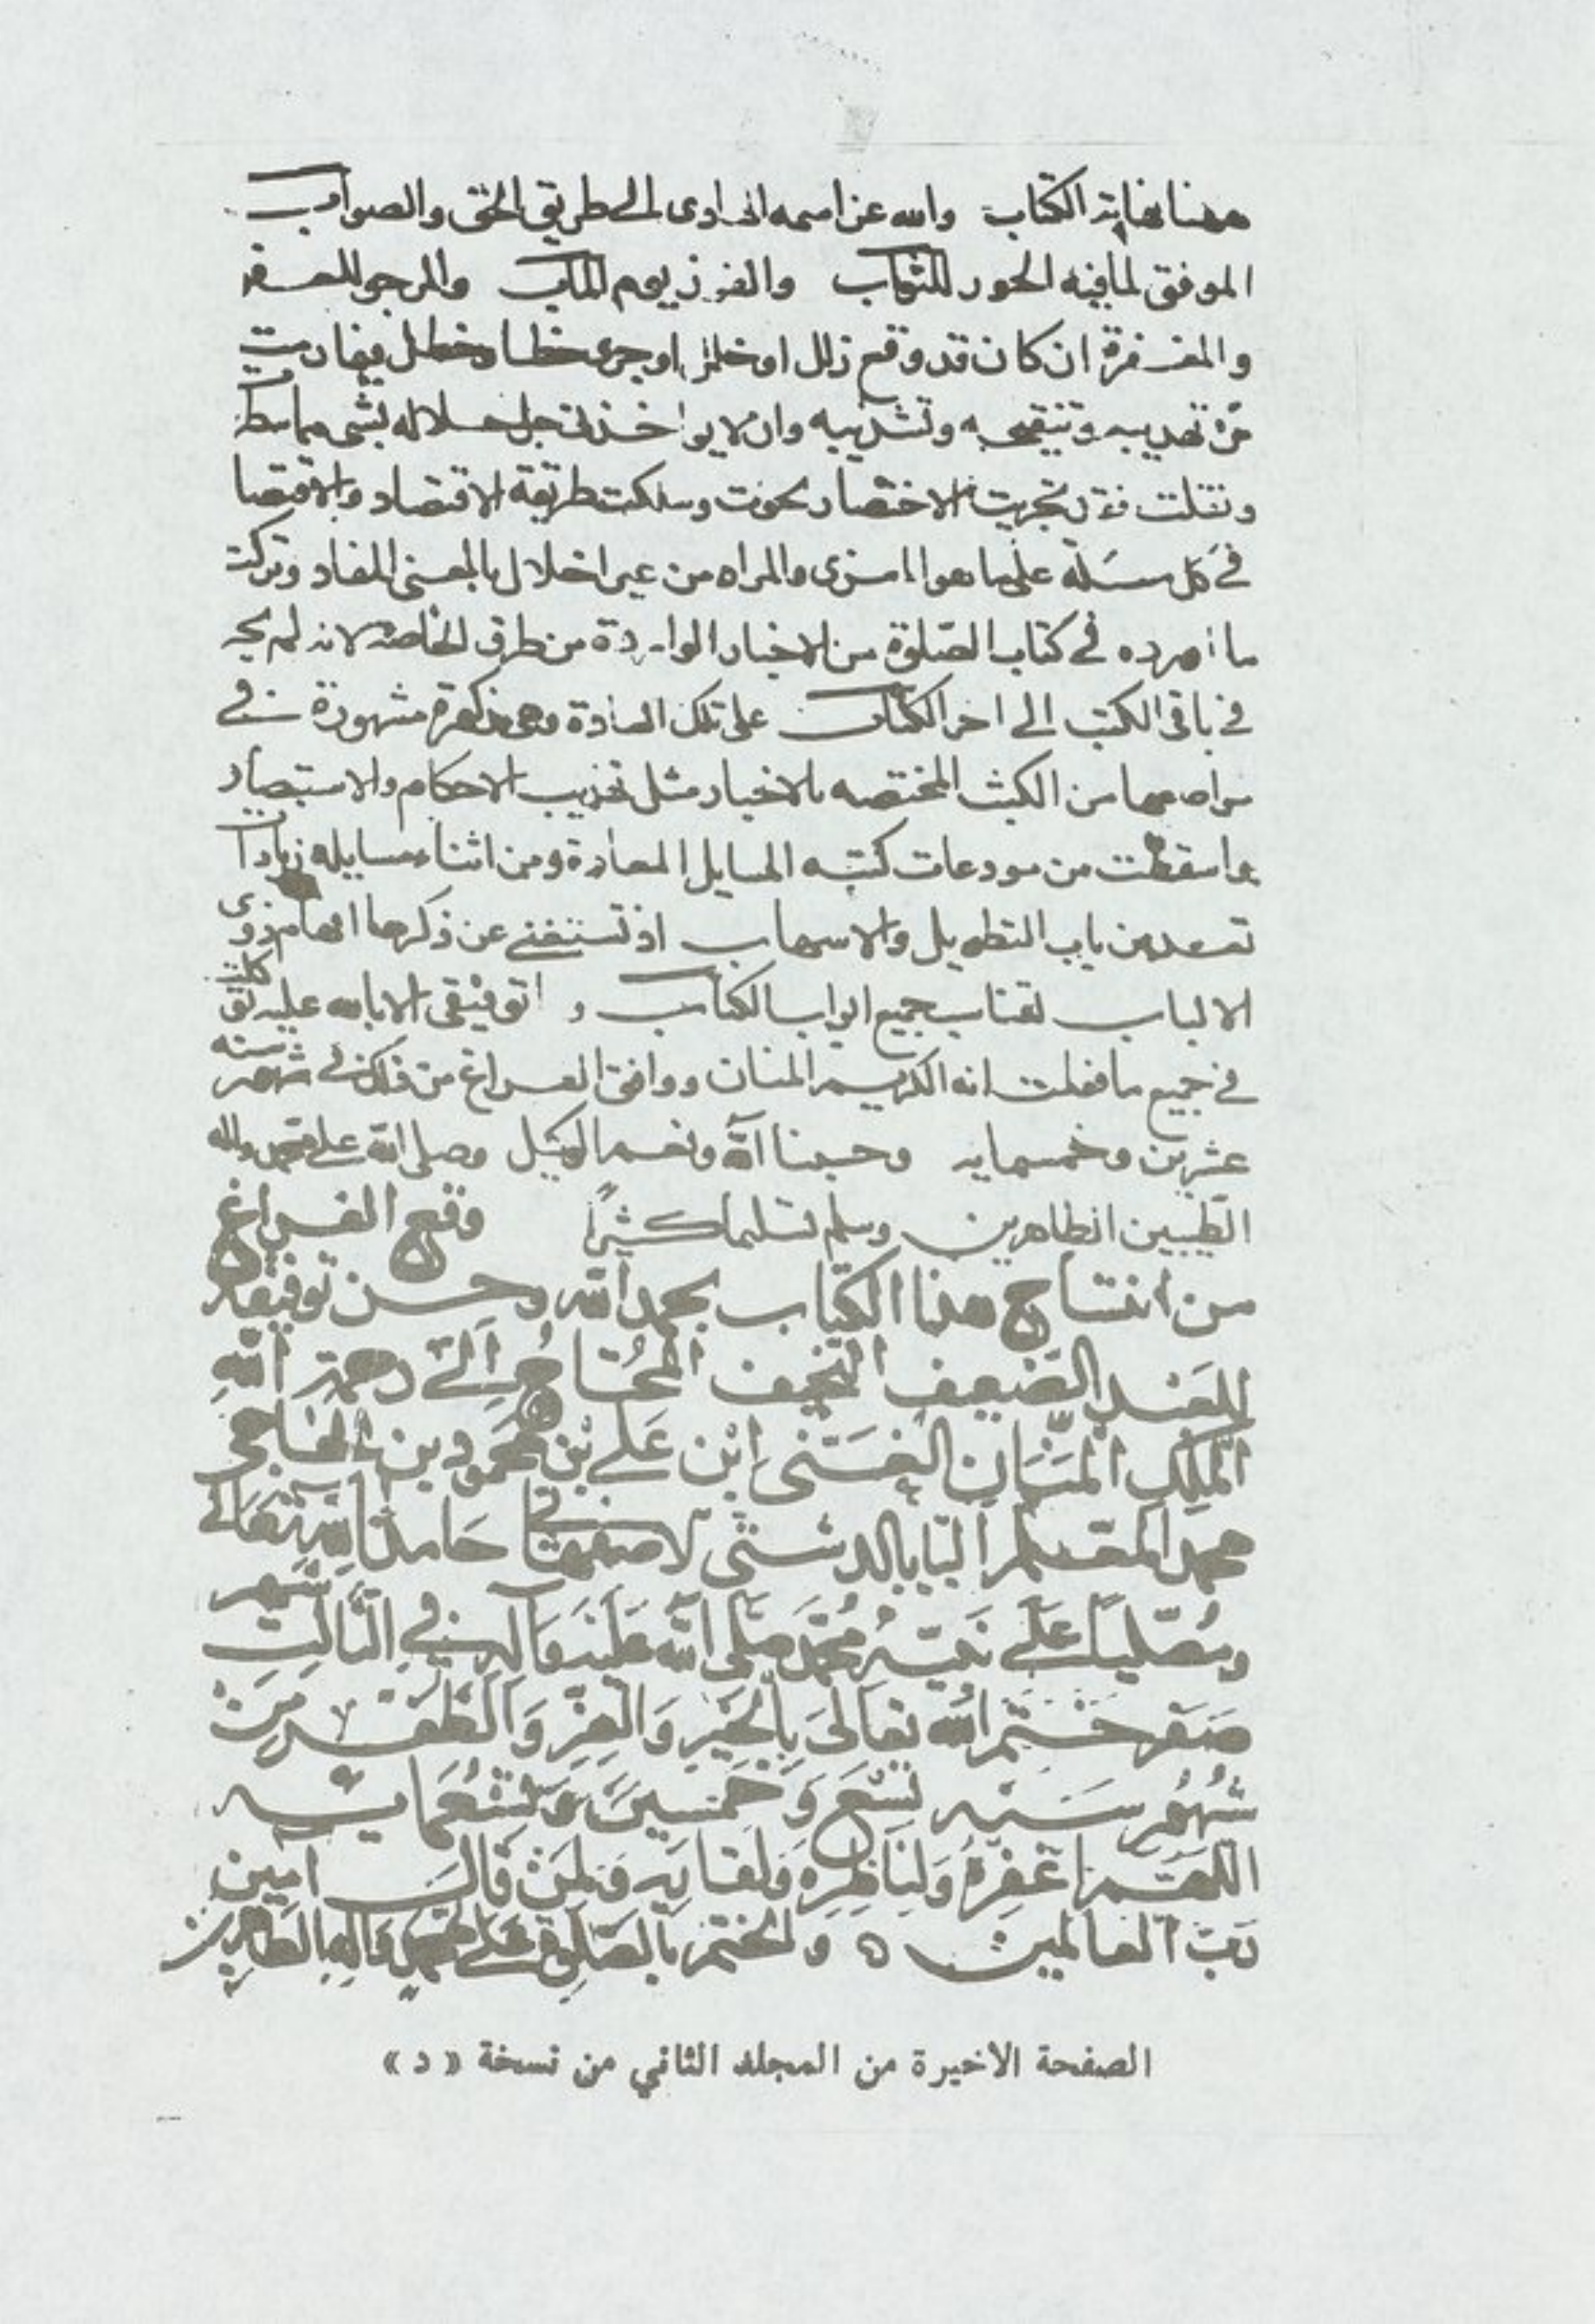 ههنا نهاية الكتاب والله عز اسمه الهادى الى طريق الحق والصواب
الموفق لما فيه الحور للثواب والفوز يوم المآب والمرجو للعفو
والمغفرة ان كان قد وقع زلل او خلل او جرى خطا وخطل فيما رمت
من تهذيبه وتنقيحه وتشذيبه وان لا يواخذنى جل جلاله بشى مما سط
ونقلت فقد تحريت الاختصار وسلكت طريقة الاقتصاد والاقتصا
فى كل مسئلة على ما هو المغزى والمراد من غير اخلال بالمعنى المفاد وتركت
ما اورده فى كتاب الصلوة من الاخبار الواردة من طرق الخاصة لانه لم يجر
فى باقى الكتب الى اخر الكتاب على تلك العادة وهى مذكورة مشهورة فى
مواضعها من الكتب المختصه بالاخبار مثل تهذيب الاحكام والاستبصار
واسقطت من مودعات كتبه المسايل المعادة ومن اثناء مسايله زيادا
تعد من باب التطويل والاسهاب اذ تستغنى عن ذكرها افهام ذوى
الالباب جميع ابواب الكتاب و توفيقى الا بالله عليه توكلت
فى جميع ما فعلت انه الكريم المنان ووافق الفراغ من ذلك فى شهر سنه
عشرين وخمسمايه وحسبنا الله ونعم الوكيل وصلى الله على محمد واله
الطيبين الطاهرين وسلم تسليما كثيرا وقع الفراغ
من انتساخ هذا الكتاب بحمد الله وحسن توفيقه
للعبد الضعيف النحيف المحتاج الى رحمة الله
الملك المنان الغنى ابن على بن محمود بن الحاجى
محمد المعلم البابا الدشتى الاصفهانى حامدا لله تعالى
ومصليا على نبيه محمد صلى الله عليه وآله فى الثالث شهر
صفر ختم الله تعالى بالخير والعز والظفر من
شهور سنه تسع وخمسين وتسعمايه
اللهم اغفره ولناظره ولقاريه ولمن قال امين
رب العالمين ه والختم بالصلوة على محمد وآله الطاهرين
الصفحة الاخيرة من المجلد الثاني من نسخة « د »